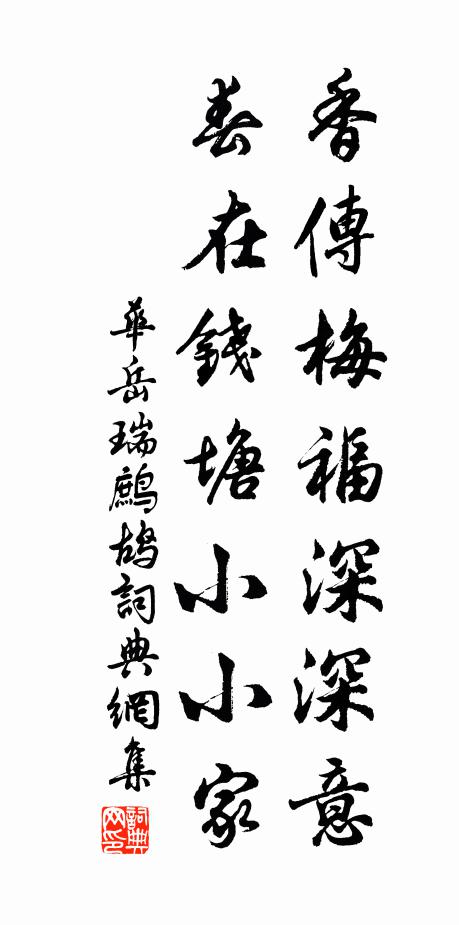 香傳梅福深深意
春在錢塘小小家
華岳瑞鷓鴣詞典網集
詞典网印